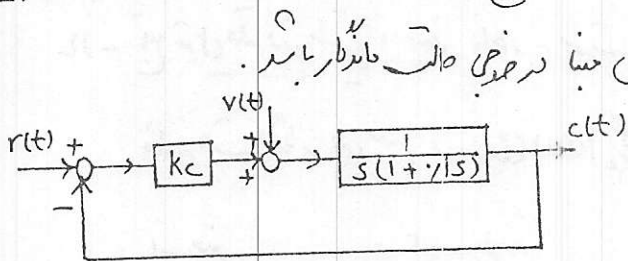 مبنا در خروجی حالت ماندگار باشد.
v(t)
r(t) + + c(t)
kc + 1
s(1+٠/١s)
−